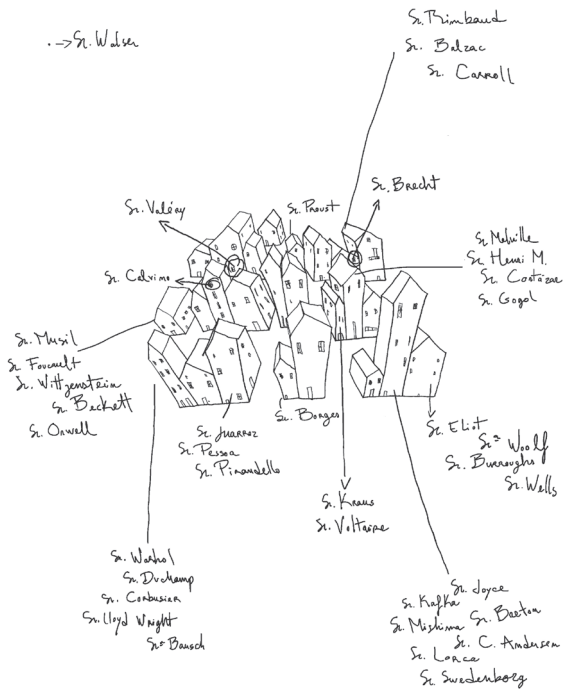 Sr. Rimbaud
Sr. Balzac
Sr. Carroll
Sr. Walser
Sr. Brecht
Sr. Valéry
Sr. Proust
Sr. Melville
Sr. Henri M.
Sr. Cortázar
Sr. Gogol
Sr. Calvino
Sr. Musil
Sr. Foucault
Sr. Wittgenstein
Sr. Beckett
Sr. Orwell
Sr. Juarroz
Sr. Pessoa
Sr. Pirandello
Sr. Borges
Sr. Eliot
Srª Woolf
Sr. Burroughs
Sr. Wells
Sr. Kraus
Sr. Voltaire
Sr. Warhol
Sr. Duchamp
Sr. Corbusier
Sr. Lloyd Wright
Srª Bausch
Sr. Joyce
Sr. Kafka
Sr. Breton
Sr. Mishima
Sr. C. Andersen
Sr. Lorca
Sr. Swedenborg